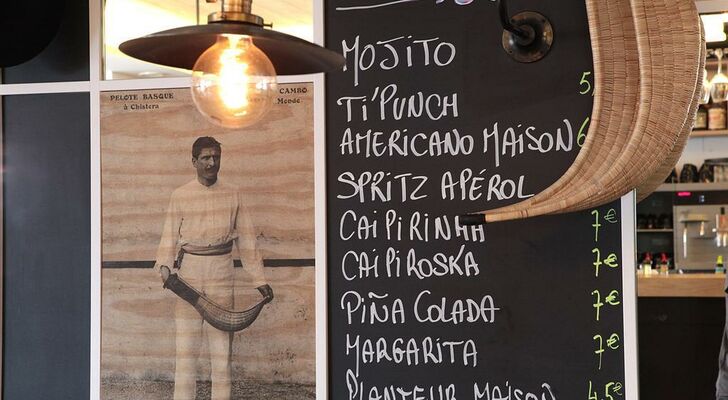 PELOTE BASQUE
à Chistera
CAMBO
MOJITO
TI'PUNCH 5,
AMERICANO MAISON 6
SPRITZ APÉROL
CAIPIRINHA 7€
CAIPIROSKA 7€
PIÑA COLADA 7€
MARGARITA 7€
PLANTEUR MAISON 4,5€